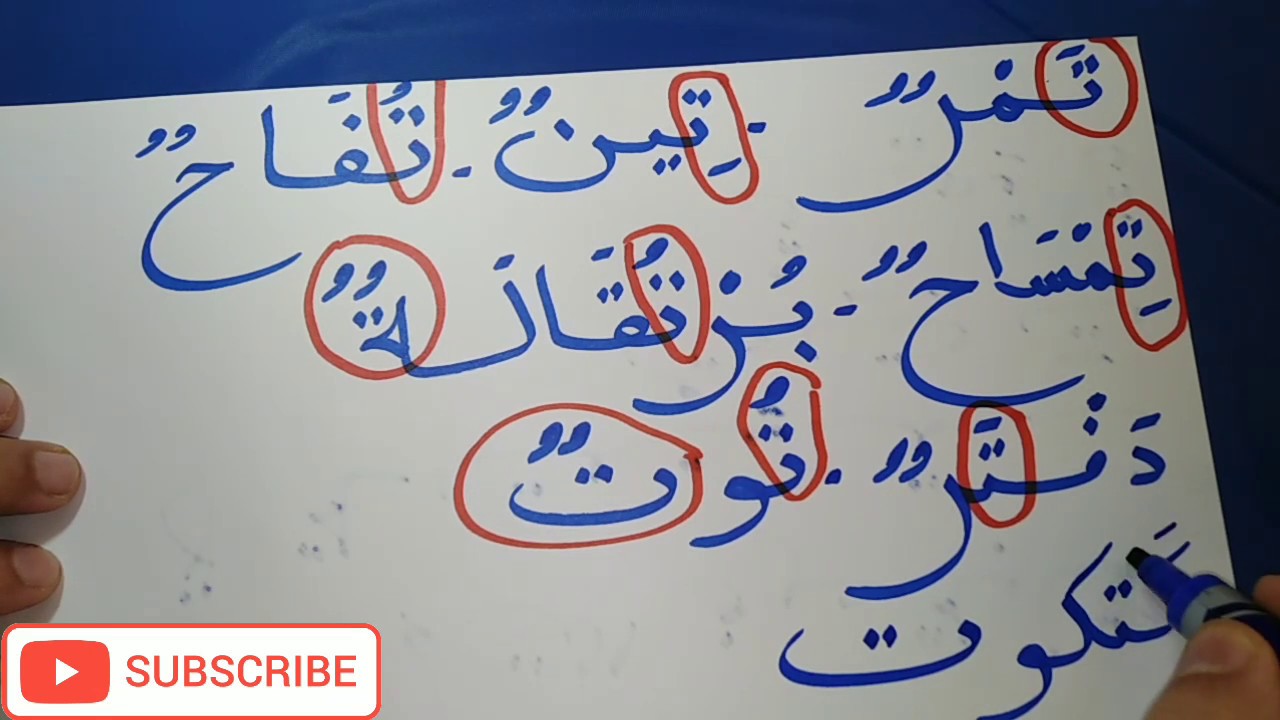 تَمْرٌ - تِينٌ - تُفَاحٌ
تِمْسَاحٌ - بُرْتُقَالَةٌ
دَفْتَرٌ - تُوتٌ
SUBSCRIBE